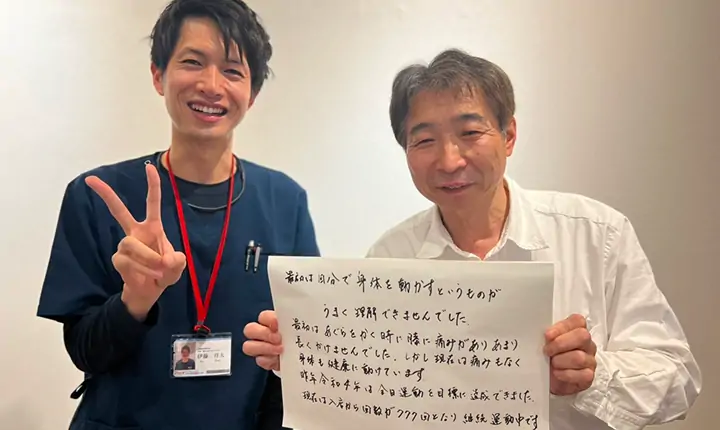 最初は自分で身体を動かすというものが
うまく理解できませんでした。
最初はあぐらをかく時に膝に痛みがありあまり
長くかけませんでした。しかし現在は痛みもなく
身体も健康に動けています
昨年令和4年は全日運動を目標に達成できました。
現在は入店から回数が777回となり継続運動中です
伊藤